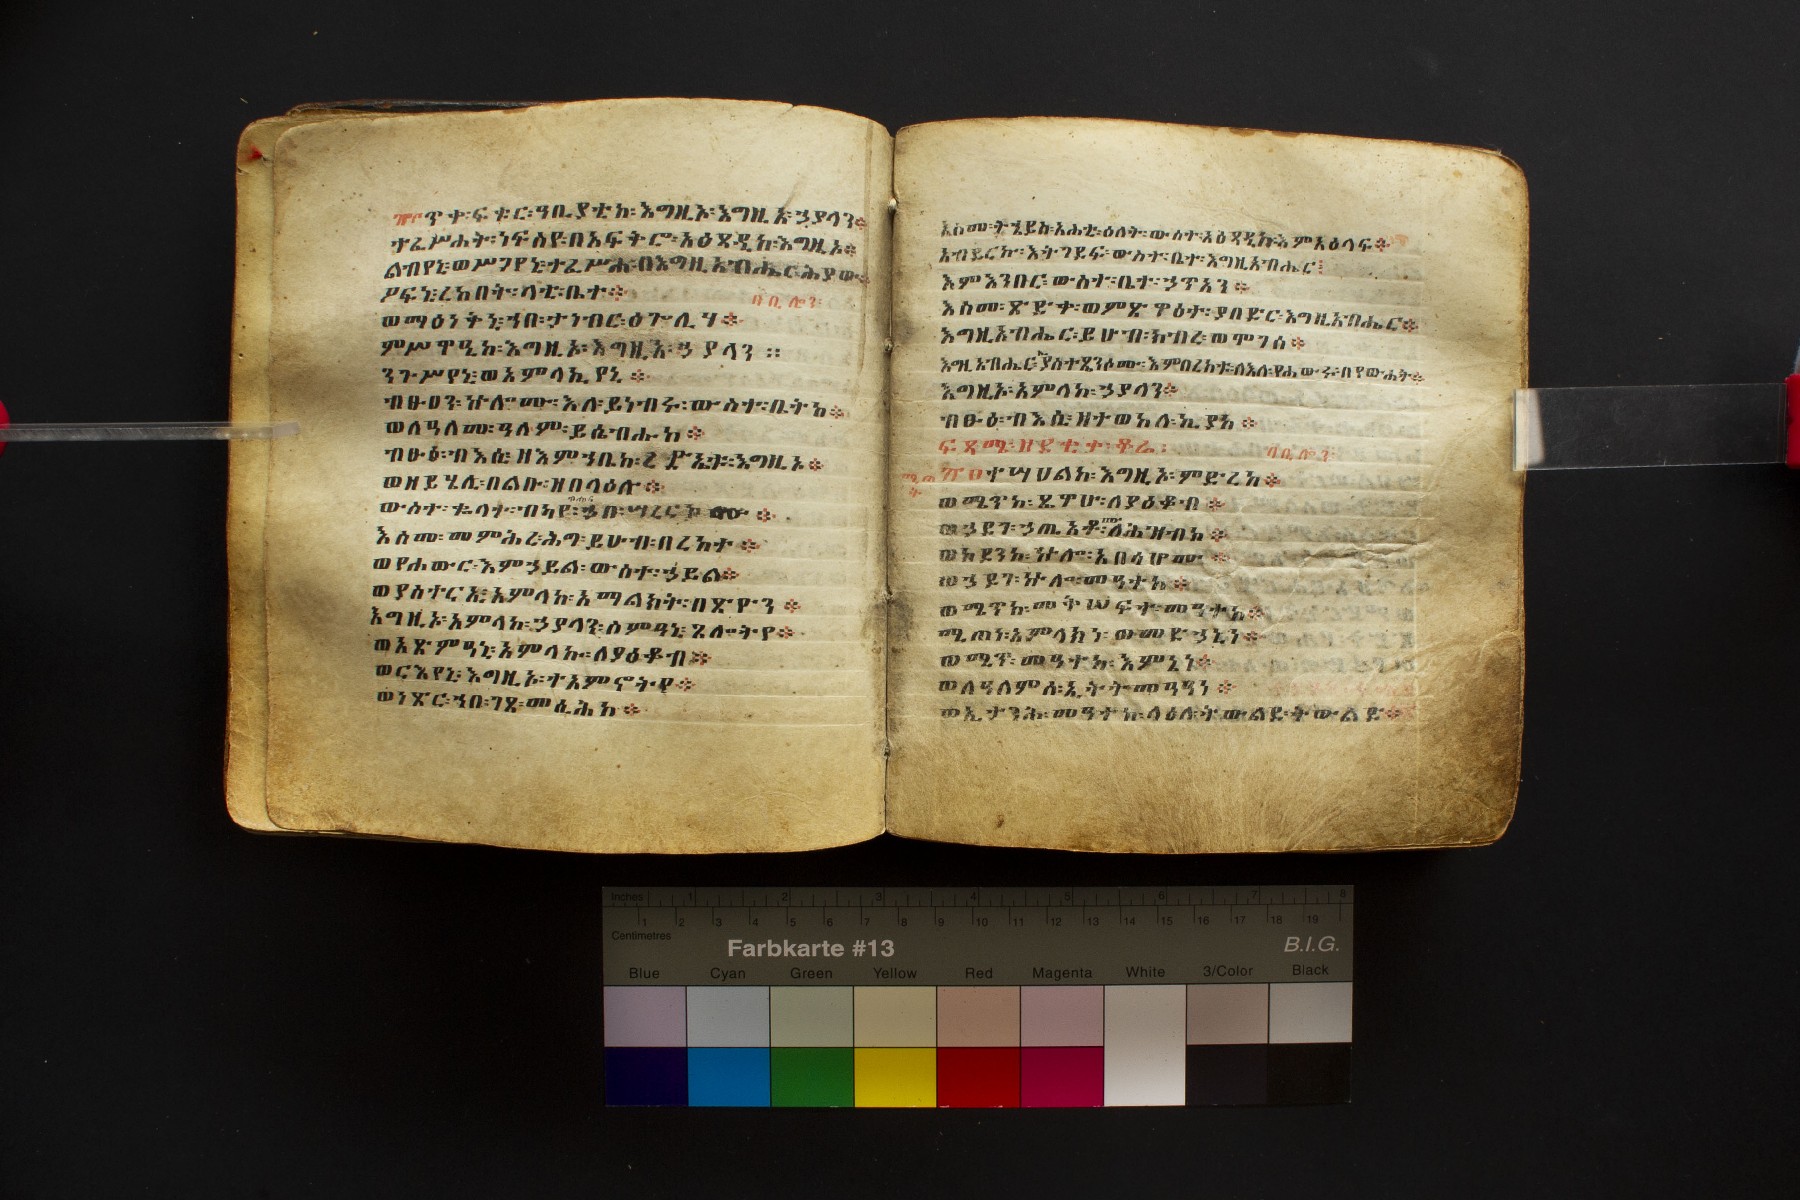 ፹፫ጥቀ፡ፍቁር፡ዓቢያቲከ፡እግዚኦ፡እግዚአ፡ኃያላን፨
ተፈሥሐት፡ነፍስየ፡በአፍቅሮ፡አዕጻዲከ፡እግዚኦ፨
ልብየኒ፡ወሥጋየኒ፡ተፈሥሐ፡በእግዚአብሔር፡ሕያው፨
ዖፍኒ፡ረከበት፡ላቲ፡ቤተ፨
ባቢሎን፡
ወማዕነቅኒ፡ኀበ፡ታነብር፡ዕጐሊሃ፨
ምሥዋዒከ፡እግዚኦ፡እግዚአ፡ኃያላን ።
ንጉሥየኒ፡ወአምላኪየኒ፨
ብፁዐን፡ኵሎሙ፡እለ፡ይነብሩ፡ውስተ፡ቤትከ፨
ወለዓለመ፡ዓለም፡ይሴብሑከ፨
ብፁዕ፡ብእሲ፡ዘእምኀቤከ፡ረድኤቱ፡እግዚኦ፨
ወዘይሄሊ፡በልቡ፡ዘበላዕሉ፨
ውስተ፡ቈላተ፡ብካይ፡ኀበ፡ሣረርኮሙ፨
እስመ፡መምሕረ፡ሕግ፡ይሁብ፡በረከተ፨
ወየሐውር፡እምኃይል፡ውስተ፡ኃይል፨
ወያስተርኢ፡አምላከ፡አማልክት፡በጽዮን፨
እግዚኦ፡አምላከ፡ኃያላን፡ስምዓኒ፡ጸሎትየ፨
ወአጽምዓኒ፡አምላኩ፡ለያዕቆብ፨
ወርእየኒ፡እግዚኦ፡ተአምኖትየ፨
ወነጽር፡ኀበ፡ገጸ፡መሲሕከ፨
እስመ፡ትኄይስ፡አሐቲ፡ዕለት፡ውስተ፡አዕጻዲከ፡እምአዕላፍ፨
አብደርኩ፡እትገደፍ፡ውስተ፡ቤተ፡እግዚአብሔር፡
እምእንበር፡ውስተ፡ቤተ፡ኃጥአን፨
እስመ፡ጽድቀ፡ወምጽዋዕተ፡ያበድር፡እግዚአብሔር፨
እግዚአብሔር፡ይሁብ፡ክብረ፡ወሞገሰ፨
እግዚአብሔር፡ያስተጼንሶሙ፡እምበረከቱ፡ለእለ፡የሐውሩ፡በየውሐት፨
እግዚኦ፡አምላከ፡ኃያላን፨
ብፁዕ፡ብእሲ፡ዘተወከለ፡ኪያከ፨
ፍጻሜ፡ዘደቂቀ፡ቆሬ፡
ባቢሎን፡
፹፬ተሣሀልከ፡እግዚኦ፡ምድረከ፨
ወሜጥከ፡ጼዋሁ፡ለያዕቆብ፨
ወኃደገ፡ኃጢአቶሙ፡ለሕዝብከ፨
ወከደንከ፡ኵሎ፡አበሳሆሙ፨
ወኃደገ፡ኵሎ፡መዓተከ፨
ወሜጥከ፡መቅሠፍተ፡መዓተከ፨
ሚጠነ፡አምላክነ፡ወመድኃኒነ፨
ወሚጥ፡መዓተከ፡እምኔነ፨
ወለዓለምሰ፡ኢትትመዓዓነ፨
ወኢታንሕ፡መዓተከ፡ላዕለ፡ትውልደ፡ትውልድ፨
Inches 1 2 3 4 5 6 7 8
1 2 3 4 5 6 7 8 9 10 11 12 13 14 15 16 17 18 19
Centimetres
Farbkarte #13
B.I.G.
Blue Cyan Green Yellow Red Magenta White 3/Color Black